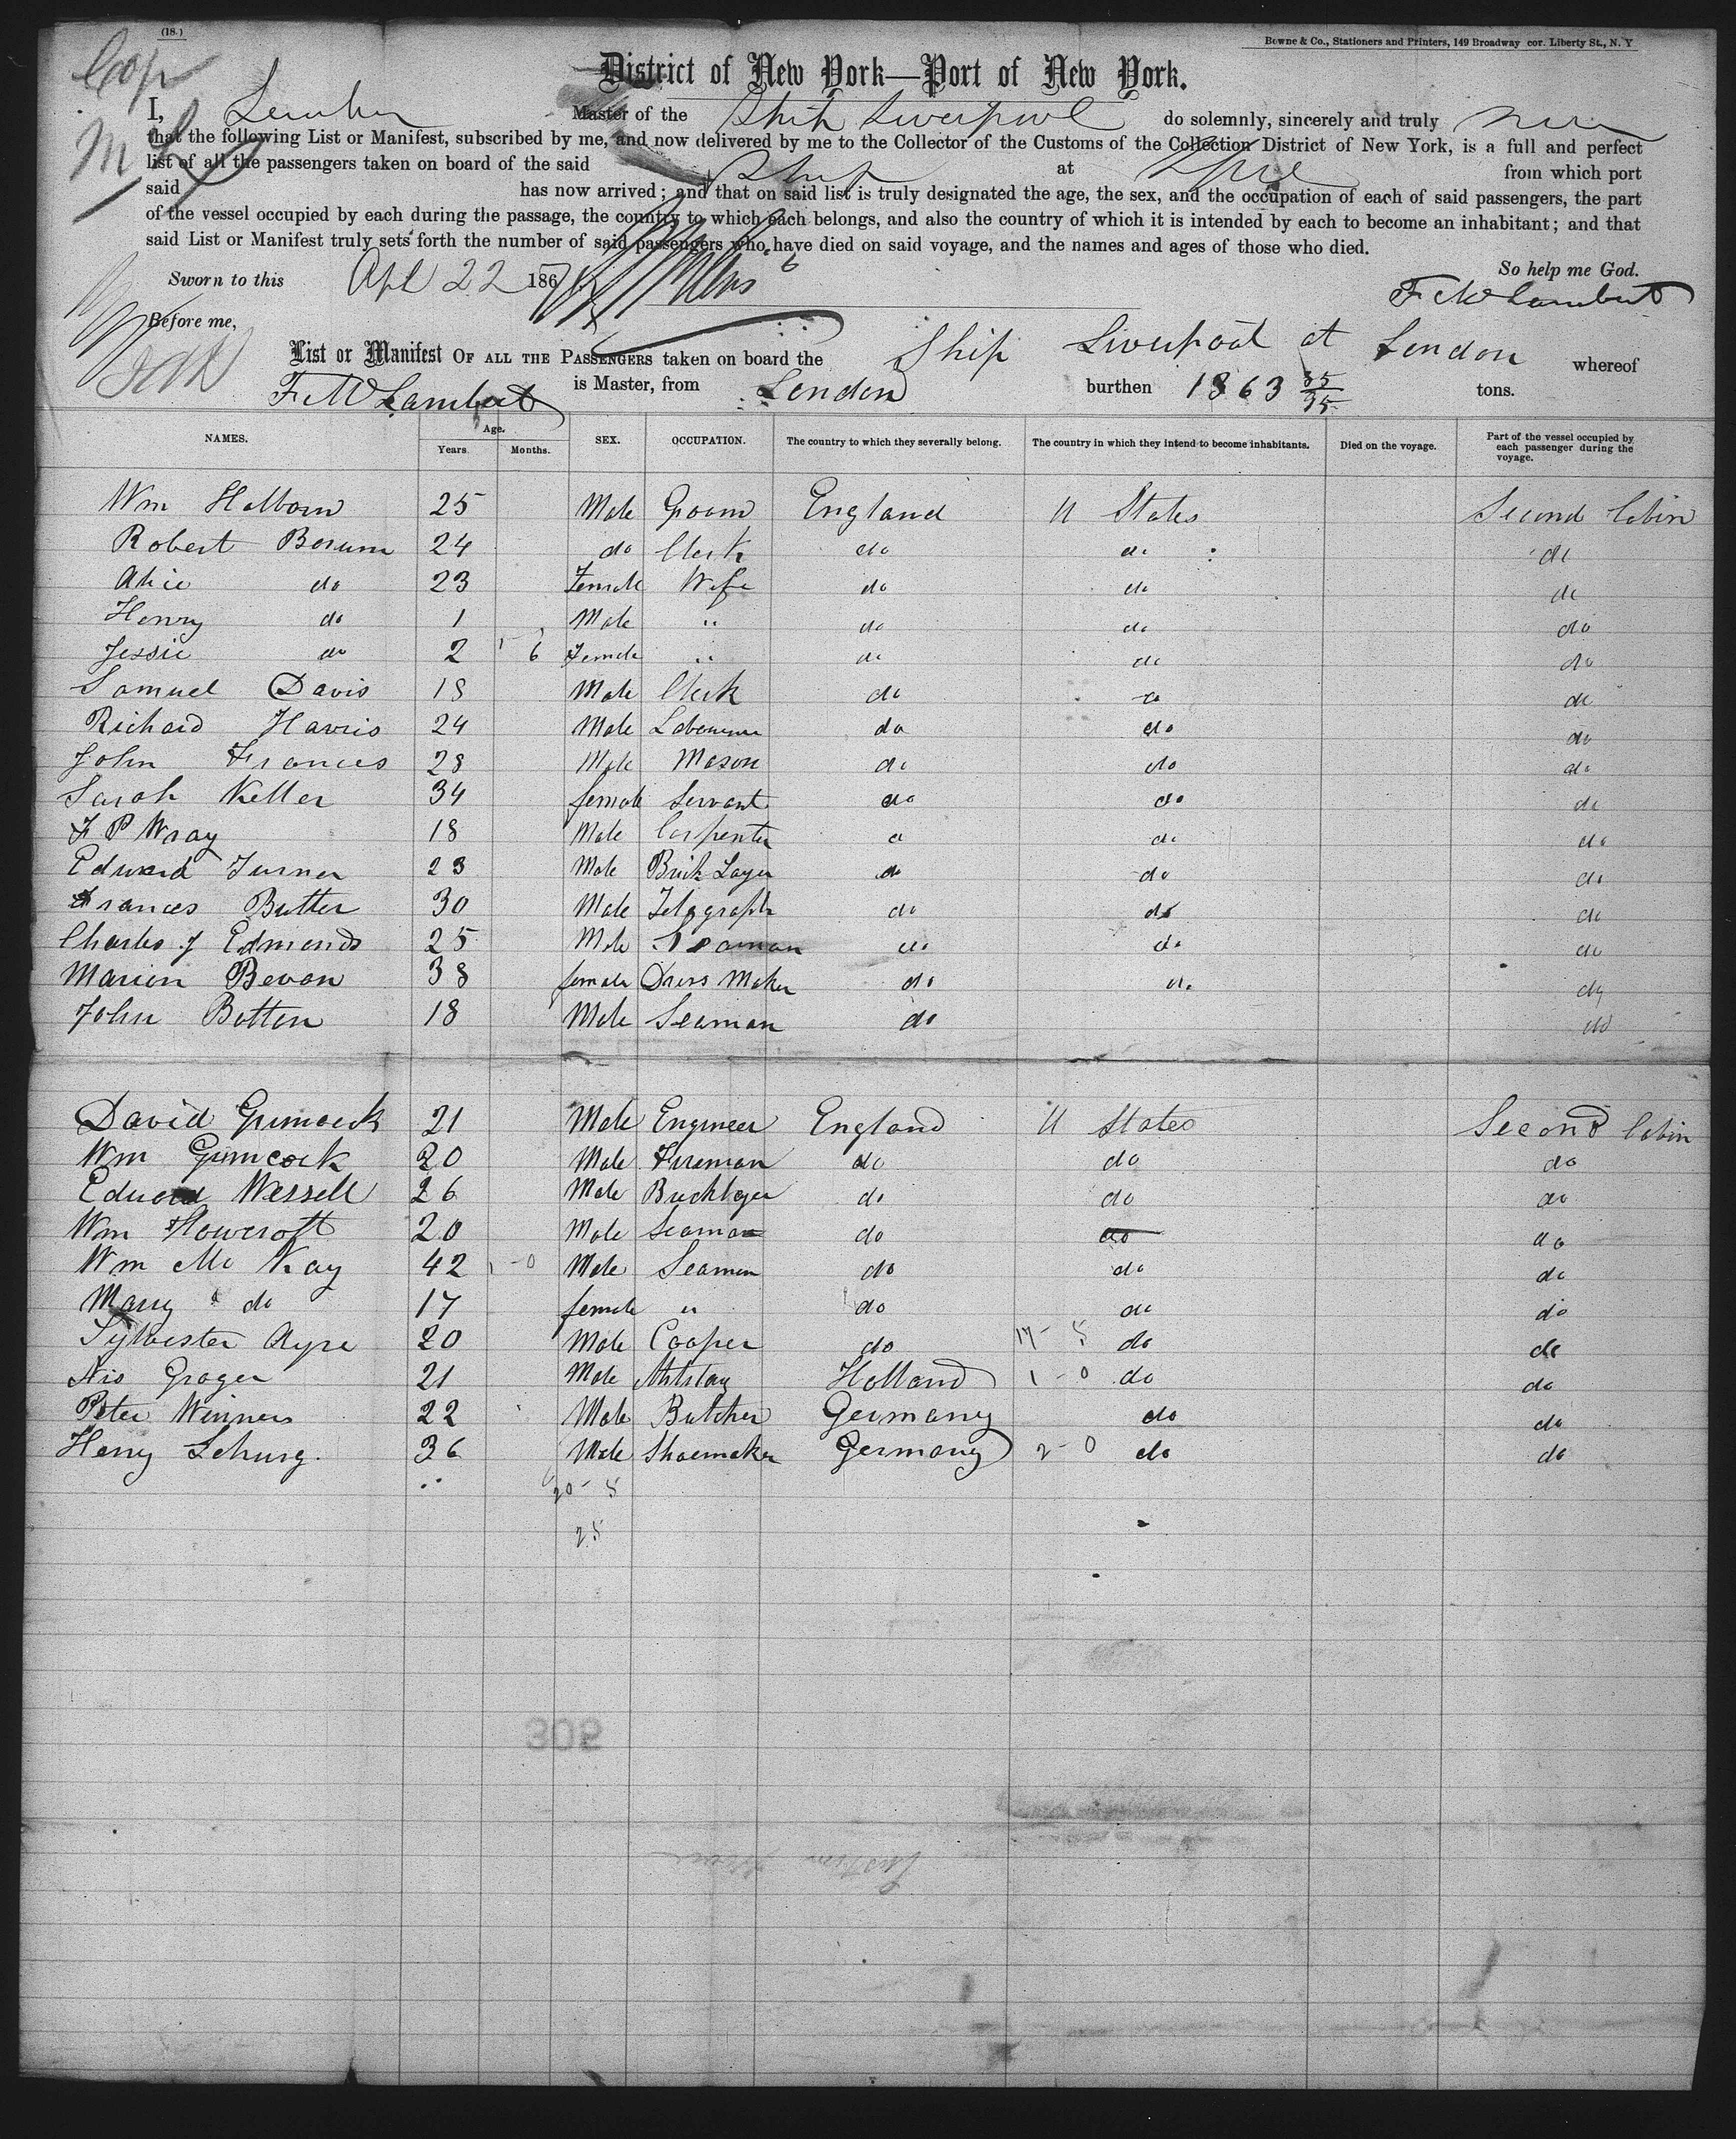 (18.)
Bowne & Co., Stationers and Printers, 149 Broadway cor. Liberty St., N. Y
Cop
District of New York—Port of New York.
I, Master of the Ship Liverpool do solemnly, sincerely and truly
that the following List or Manifest, subscribed by me, and now delivered by me to the Collector of the Customs of the Collection District of New York, is a full and perfect
list of all the passengers taken on board of the said Ship at from which port
said has now arrived; and that on said list is truly designated the age, the sex, and the occupation of each of said passengers, the part
of the vessel occupied by each during the passage, the country to which each belongs, and also the country of which it is intended by each to become an inhabitant; and that
said List or Manifest truly sets forth the number of said passengers who have died on said voyage, and the names and ages of those who died.
So help me God.
Sworn to this Apl 22 187
F W Lambert
Before me,
List or Manifest OF ALL THE PASSENGERS taken on board the Ship Liverpool at London whereof
F W Lambert is Master, from London burthen 1863 35/95 tons.
NAMES. Age. Years. Months. SEX. OCCUPATION. The country to which they severally belong. The country in which they intend to become inhabitants. Died on the voyage. Part of the vessel occupied by each passenger during the voyage.
Wm Holborn 25 Male Groom England U States Second Cabin
Robert Borum 24 do Clerk do do do
Alice do 23 Female Wife do do do
Henry do 1 Male " do do do
Jessie do 2 6 Female " do do do
Samuel Davis 18 Male Clerk do do do
Richard Harris 24 Male Labourer do do do
John Frances 28 Male Mason do do do
Sarah Keller 34 female Servant do do do
F P Wray 18 Male Carpenter do do do
Edward Turner 23 Male Brick Layer do do do
Frances Butter 30 Male Telegraph do do do
Charles J Edmonds 25 Male Seaman do do do
Marion Bevan 38 female Dress Maker do do do
John Botten 18 Male Seaman do do
David Grimcock 21 Male Engineer England U States Second Cabin
Wm Grimcock 20 Male Fireman do do do
Edward Wessell 26 Male Bricklayer do do do
Wm Howcroft 20 Male Seaman do do do
Wm Mc Kay 42 - 0 Male Seaman do do do
Mary do 17 female " do do do
Sylvester Ayre 20 Male Cooper do 17 - 5 do do
Nis Grager 21 Male Holland 1 - 0 do do
Peter Winners 22 Male Butcher Germany do do
Henry Schurg. 36 Male Shoemaker Germany 2 - 0 do do
20 - 5
25
308